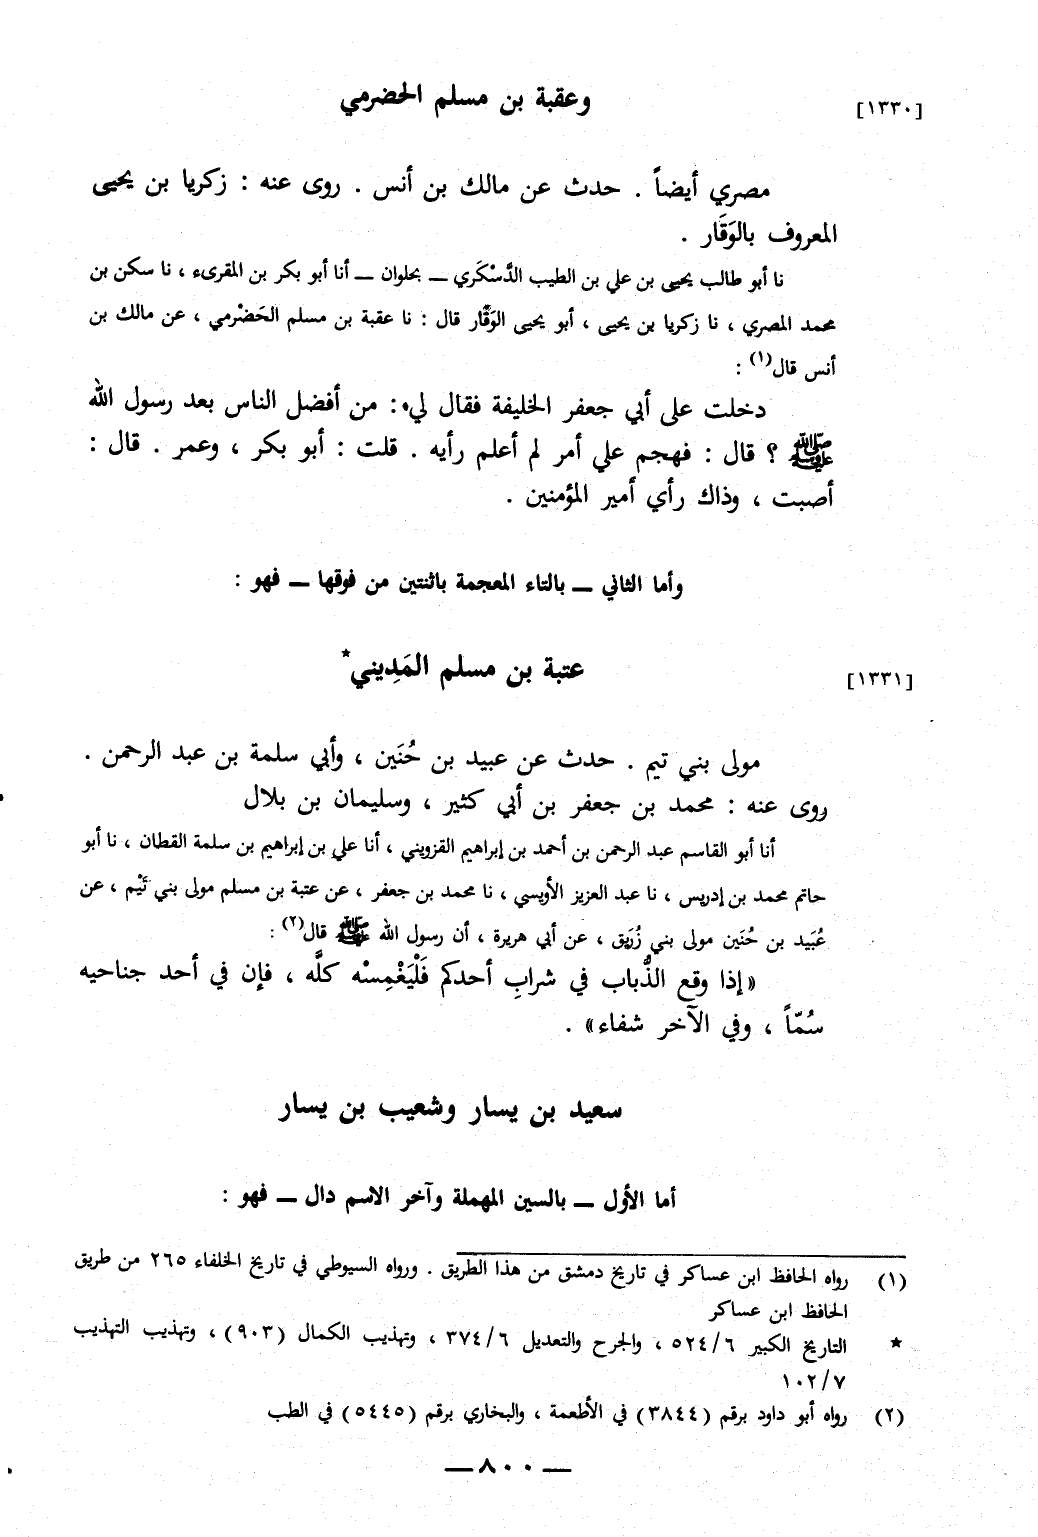 [١٣٣٠] وعقبة بن مسلم الحضرمي
مصري أيضاً . حدث عن مالك بن أنس . روى عنه : زكريا بن يحيى
المعروف بالوَقَار .
نا أبو طالب يحيى بن علي بن الطيب الدَّسْكَري ــ بحلوان ــ أنا أبو بكر بن المقرىء ، نا سكن بن
محمد المصري ، نا زكريا بن يحيى ، أبو يحيى الوَقَّار قال : نا عقبة بن مسلم الحَضْرمي ، عن مالك بن
أنس قال(١) :
دخلت على أبي جعفر الخليفة فقال لي : من أفضل الناس بعد رسول الله
ﷺ ؟ قال : فهجم علي أمر لم أعلم رأيه . قلت : أبو بكر ، وعمر . قال :
أصبت ، وذاك رأي أمير المؤمنين .
وأما الثاني ــ بالتاء المعجمة باثنتين من فوقها ــ فهو :
[١٣٣١] عتبة بن مسلم المَدِيني*
مولى بني تيم . حدث عن عبيد بن حُنَين ، وأبي سلمة بن عبد الرحمن .
روى عنه : محمد بن جعفر بن أبي كثير ، وسليمان بن بلال
أنا أبو القاسم عبد الرحمن بن أحمد بن إبراهيم القزويني ، أنا علي بن إبراهيم بن سلمة القطان ، نا أبو
حاتم محمد بن إدريس ، نا عبد العزيز الأويسي ، نا محمد بن جعفر ، عن عتبة بن مسلم مولى بني تَيْم ، عن
عُبَيد بن حُنَين مولى بني زُرَيق ، عن أبي هريرة ، أن رسول الله ﷺ قال(٢) :
«إذا وقع الذُّباب في شرابِ أحدكم فَلْيَغْمِسْه كلَّه ، فإن في أحد جناحيه
سُمّاً ، وفي الآخر شفاء» .
سعيد بن يسار وشعيب بن يسار
أما الأول ــ بالسين المهملة وآخر الاسم دال ــ فهو :
(١) رواه الحافظ ابن عساكر في تاريخ دمشق من هذا الطريق . ورواه السيوطي في تاريخ الخلفاء ٢٦٥ من طريق
الحافظ ابن عساكر
* التاريخ الكبير ٥٢٤/٦ ، والجرح والتعديل ٣٧٤/٦ ، وتهذيب الكمال (٩٠٣) ، وتهذيب التهذيب
١٠٢/٧
(٢) رواه أبو داود برقم (٣٨٤٤) في الأطعمة ، والبخاري برقم (٥٤٤٥) في الطب
ــ ٨٠٠ ــ